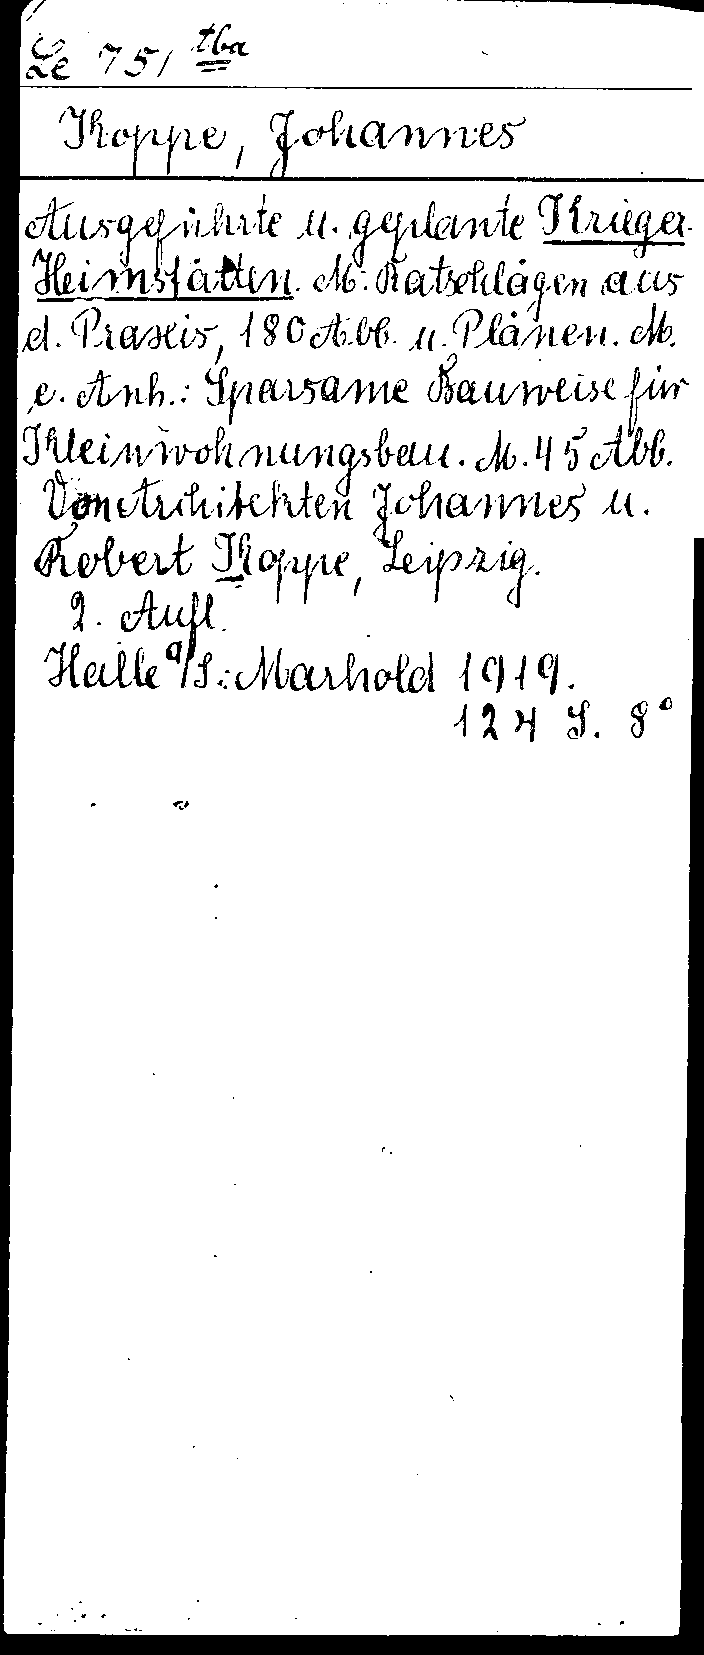 Le 751 tba
Koppe, Johannes
Ausgeführte u. geplante Krieger-
Heimstätten. M. Ratschlägen aus
d. Praxis, 180 Abb. u. Plänen. M.
e. Anh.: Sparsame Bauweise für
Kleinwohnungsbau. M. 45 Abb.
Von Architekten Johannes u.
Robert Koppe, Leipzig.
2. Aufl.
Halle a/S.: Marhold 1919.
124 S. 8°